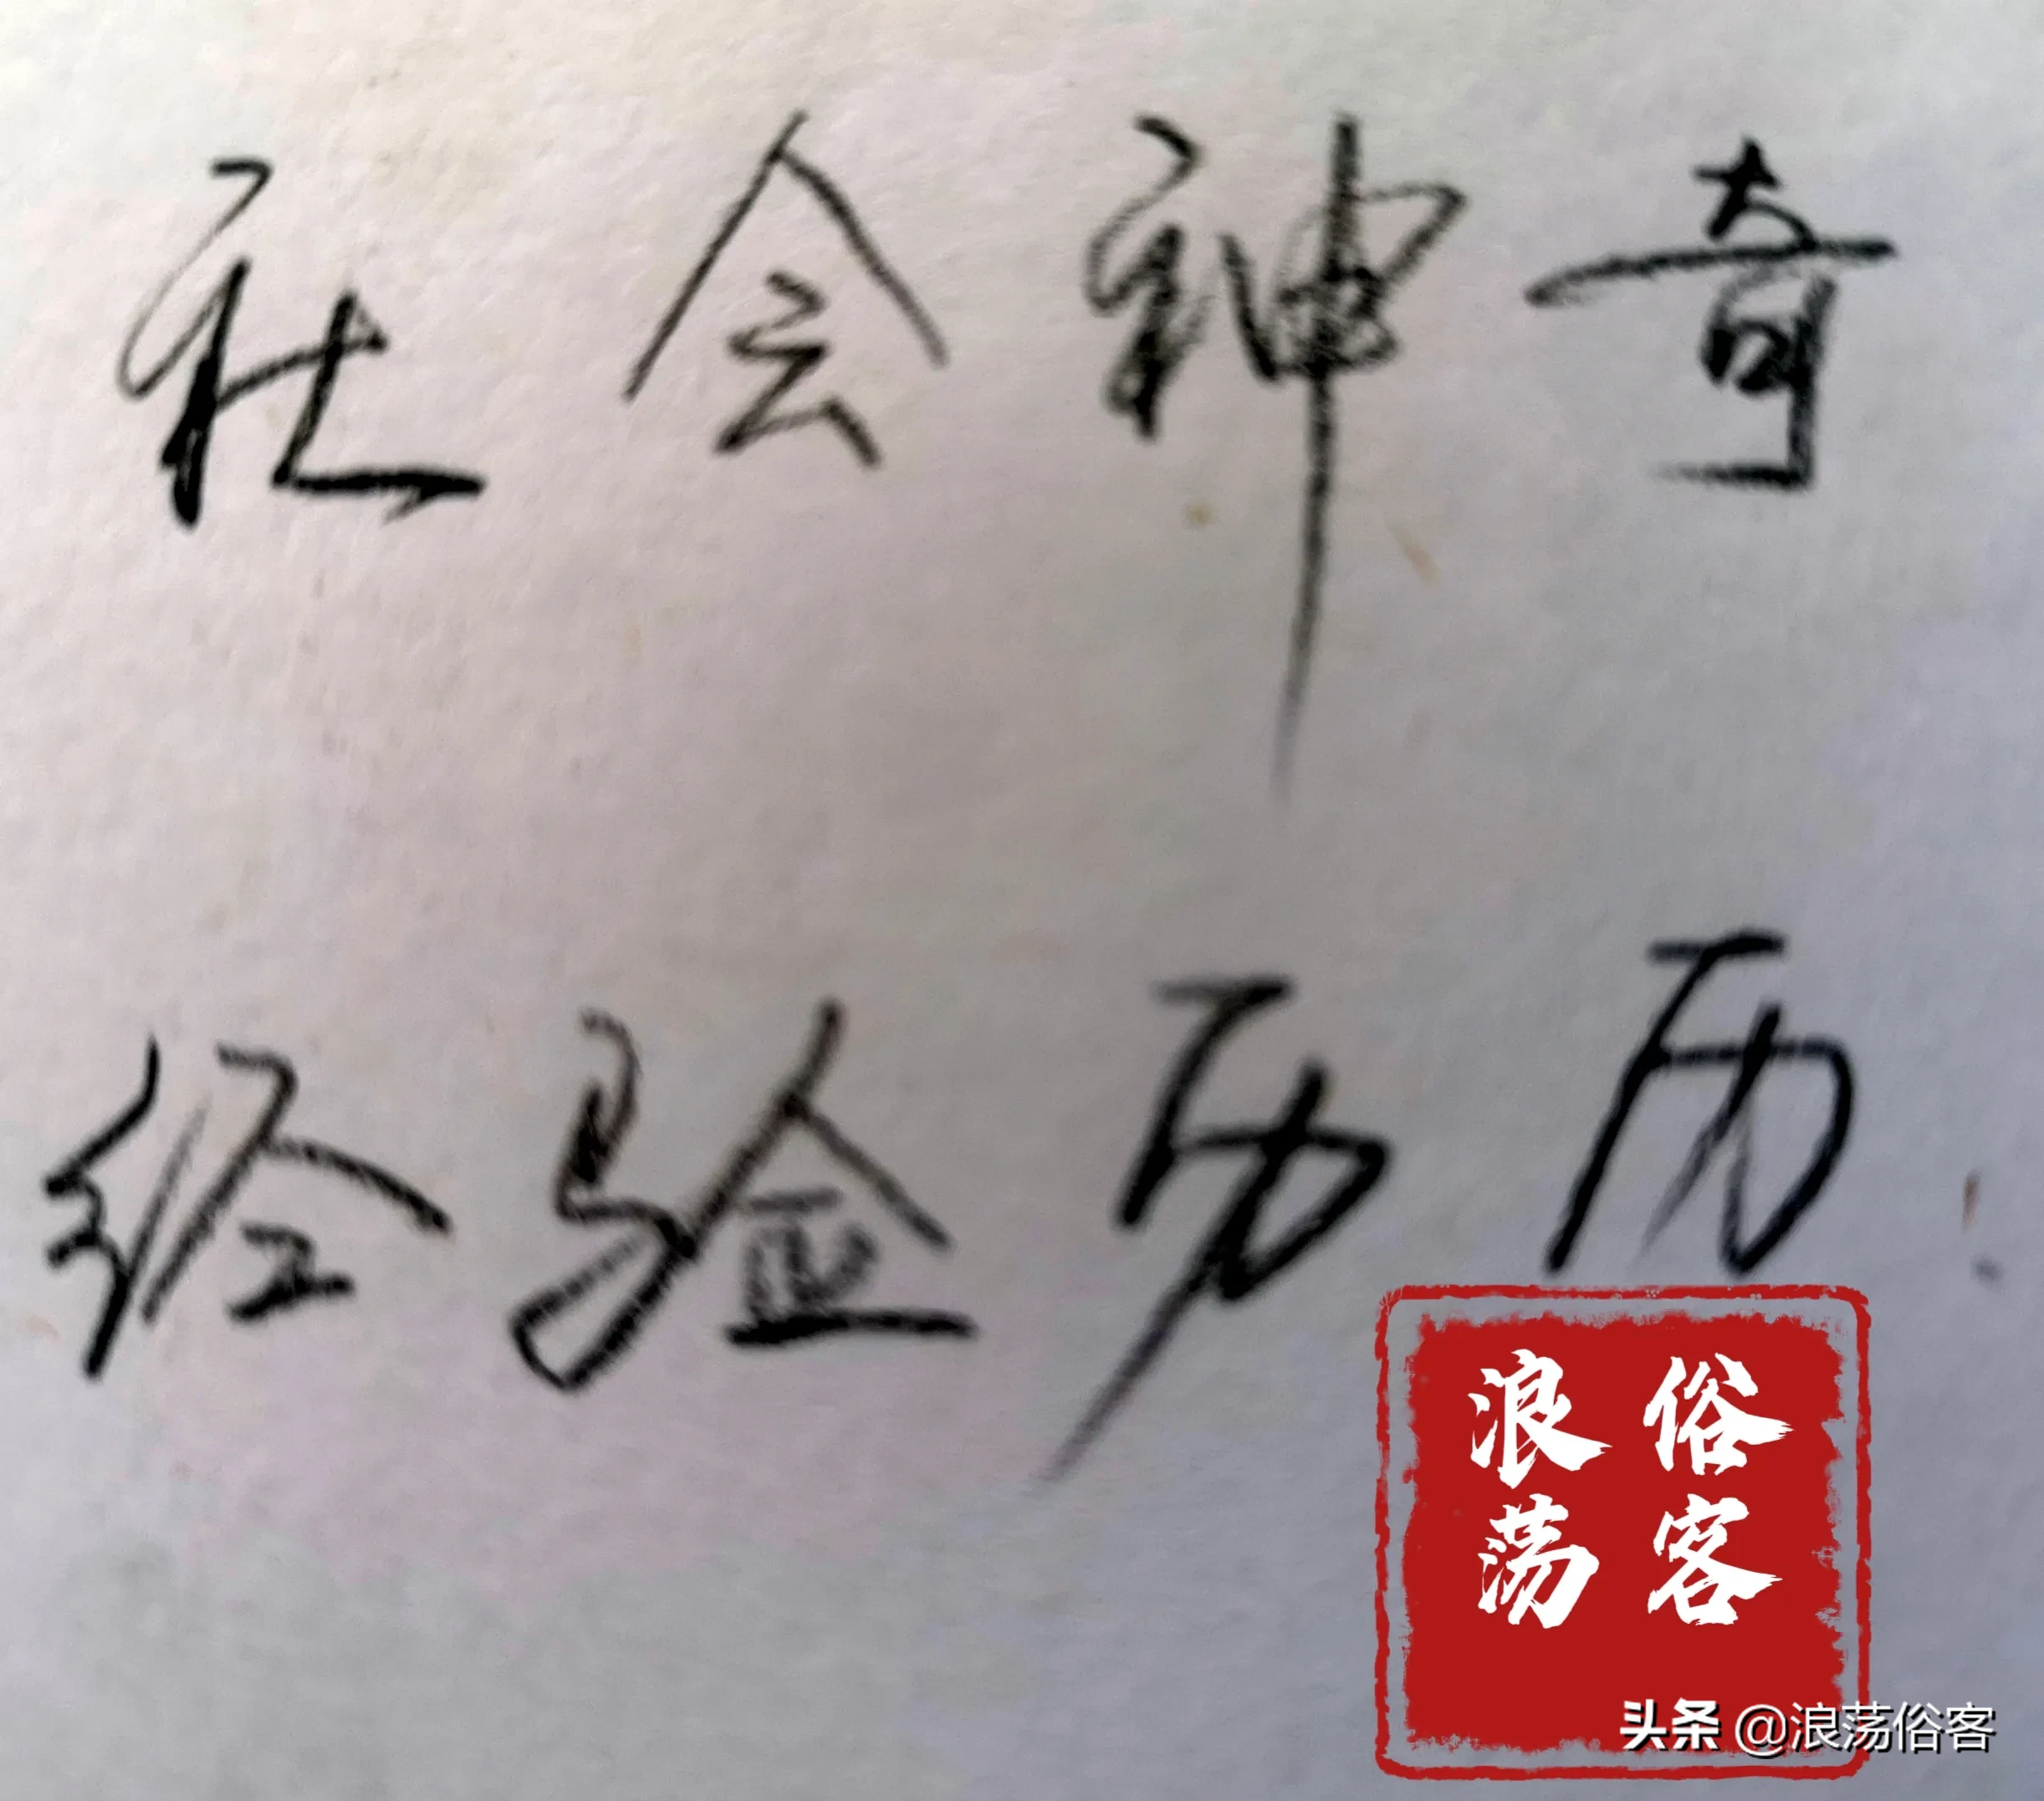 社会神奇
经验历历
浪荡
俗客
头条 @浪荡俗客